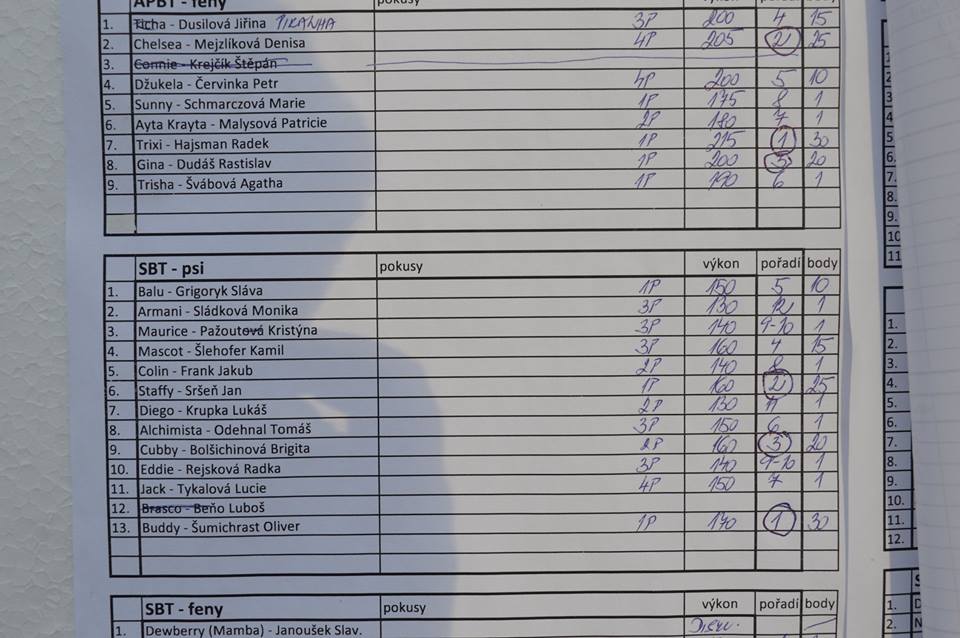 APBT - feny pokusy výkon pořadí body
1. Ticha - Dusilová Jiřina PIRANHA 3P 200 4 15
2. Chelsea - Mejzlíková Denisa 4P 205 2 25
3. Connie - Krejčík Štěpán
4. Džukela - Červinka Petr 4P 200 5 10
5. Sunny - Schmarczová Marie 1P 175 8 1
6. Ayta Krayta - Malysová Patricie 2P 180 7 1
7. Trixi - Hajsman Radek 1P 215 1 30
8. Gina - Dudáš Rastislav 1P 200 3 20
9. Trisha - Švábová Agatha 1P 190 6 1
SBT - psi pokusy výkon pořadí body
1. Balu - Grigoryk Sláva 1P 150 5 10
2. Armani - Sládková Monika 3P 130 12 1
3. Maurice - Pažoutová Kristýna 3P 140 9-10 1
4. Mascot - Šlehofer Kamil 3P 160 4 15
5. Colin - Frank Jakub 2P 140 8 1
6. Staffy - Sršeň Jan 1P 160 2 25
7. Diego - Krupka Lukáš 2P 130 11 1
8. Alchimista - Odehnal Tomáš 3P 150 6 1
9. Cubby - Bolšichinová Brigita 2P 160 3 20
10. Eddie - Rejsková Radka 3P 140 9-10 1
11. Jack - Tykalová Lucie 4P 150 7 1
12. Brasco - Beňo Luboš
13. Buddy - Šumichrast Oliver 1P 170 1 30
SBT - feny pokusy výkon pořadí body
1. Dewberry (Mamba) - Janoušek Slav.